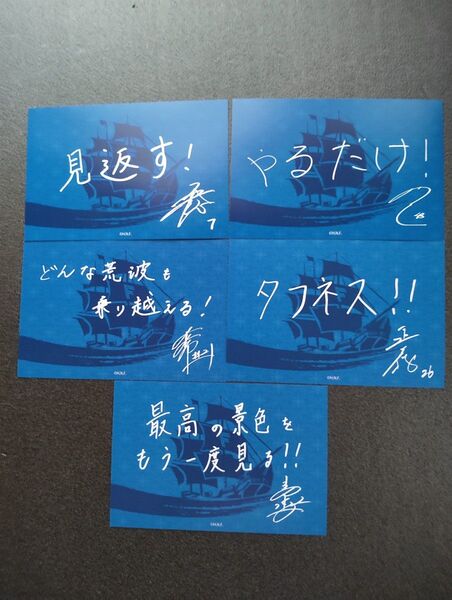 見返す!
7
©H.N.F.
やるだけ!
©H.N.F.
どんな荒波も
乗り越える!
©H.N.F.
タフネス!!
26
©H.N.F.
最高の景色を
もう一度見る!!
©H.N.F.